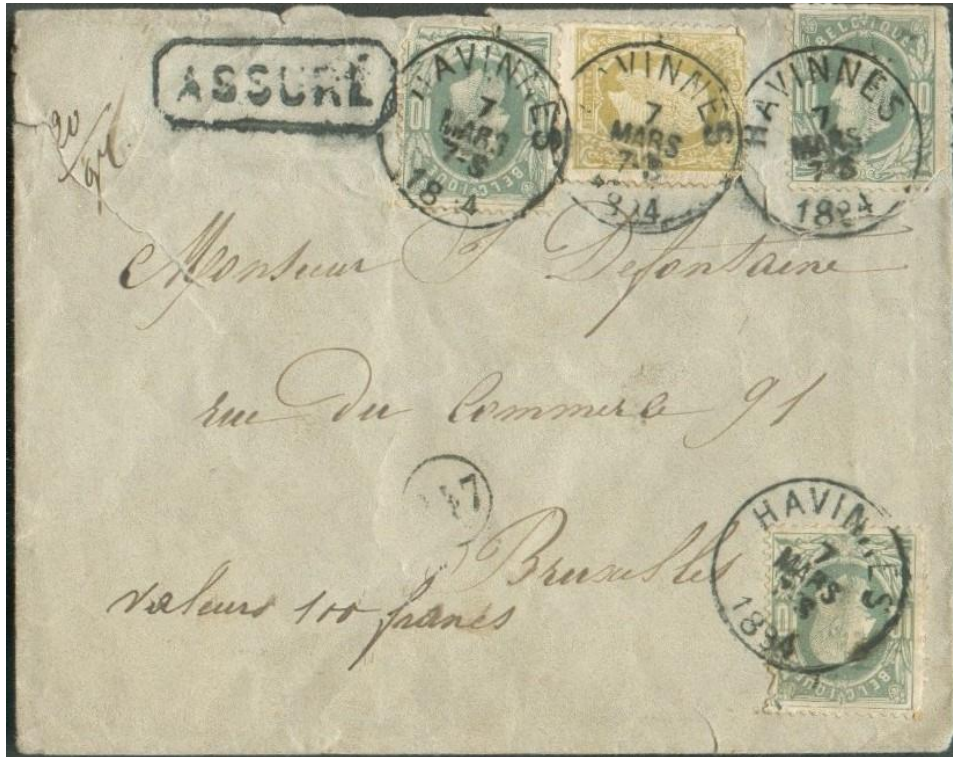 ASSURÉ
HAVINNES
7
MARS
7-S
18 4
HAVINNES
7
MARS
7-S
1884
BELGIQUE
10 10
HAVINNES
7
MARS
7-S
1884
BELGIQUE
20
gr.
Monsieur J Defontaine
rue du Commerce 91
147
Bruxelles
valeurs 100 francs
HAVINNES
7
MARS
1884
10
BELGIQUE